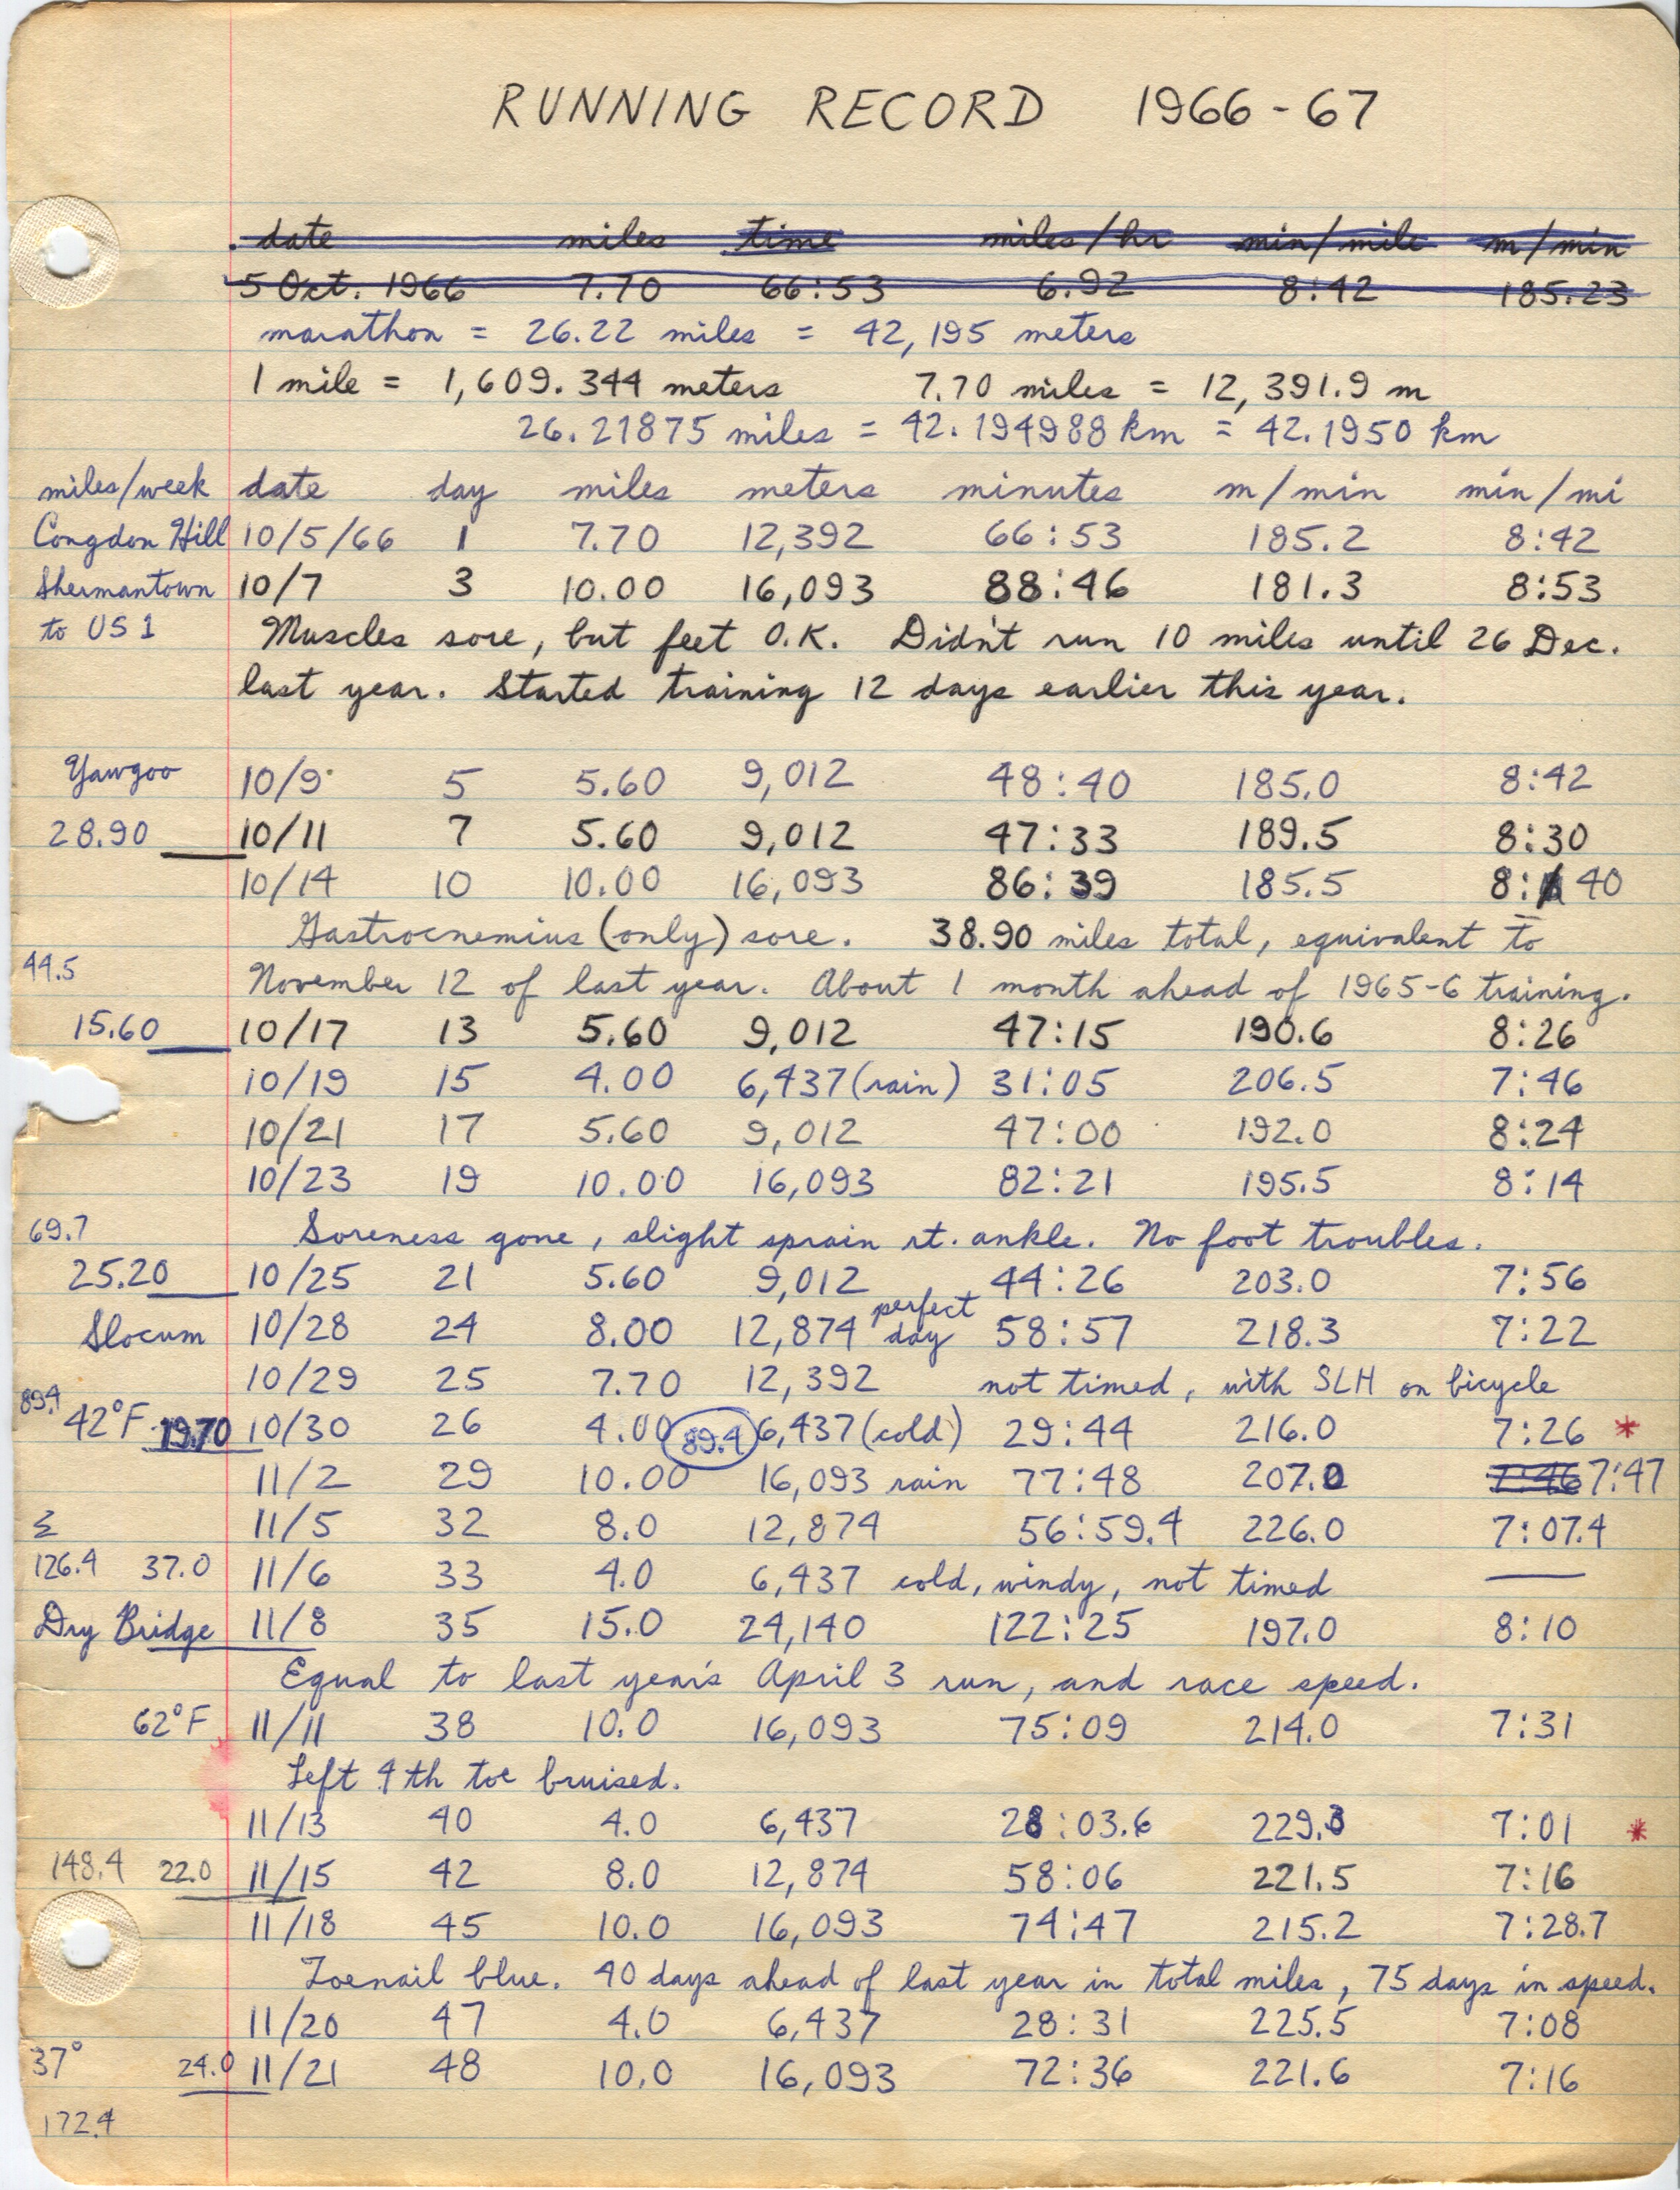 RUNNING RECORD 1966-67
date miles time miles/hr min/mile m/min
5 Oct. 1966 7.70 66:53 6.92 8:42 185.23
marathon = 26.22 miles = 42,195 meters
1 mile = 1,609.344 meters 7.70 miles = 12,391.9 m
26.21875 miles = 42.194988 km = 42.1950 km
miles/week date day miles meters minutes m/min min/mi
Congdon Hill 10/5/66 1 7.70 12,392 66:53 185.2 8:42
Shermantown 10/7 3 10.00 16,093 88:46 181.3 8:53
to US 1 Muscles sore, but feet O.K. Didn't run 10 miles until 26 Dec.
last year. Started training 12 days earlier this year.
Yawgoo 10/9 5 5.60 9,012 48:40 185.0 8:42
28.90 10/11 7 5.60 9,012 47:33 189.5 8:30
10/14 10 10.00 16,093 86:39 185.5 8:40
Gastrocnemius (only) sore. 38.90 miles total, equivalent to
44.5 November 12 of last year. About 1 month ahead of 1965-6 training.
15.60 10/17 13 5.60 9,012 47:15 190.6 8:26
10/19 15 4.00 6,437 (rain) 31:05 206.5 7:46
10/21 17 5.60 9,012 47:00 192.0 8:24
10/23 19 10.00 16,093 82:21 195.5 8:14
69.7 Soreness gone, slight sprain rt. ankle. No foot troubles.
25.20 10/25 21 5.60 9,012 44:26 203.0 7:56
Slocum 10/28 24 8.00 12,874 perfect day 58:57 218.3 7:22
10/29 25 7.70 12,392 not timed, with SLH on bicycle
89.4 42°F 19.70 10/30 26 4.00 89.4 6,437 (cold) 29:44 216.0 7:26 *
11/2 29 10.00 16,093 rain 77:48 207.0 7:46 7:47
Σ 11/5 32 8.0 12,874 56:59.4 226.0 7:07.4
126.4 37.0 11/6 33 4.0 6,437 cold, windy, not timed —
Dry Bridge 11/8 35 15.0 24,140 122:25 197.0 8:10
Equal to last year's April 3 run, and race speed.
62°F 11/11 38 10.0 16,093 75:09 214.0 7:31
Left 4th toe bruised.
11/13 40 4.0 6,437 28:03.6 229.3 7:01 *
148.4 22.0 11/15 42 8.0 12,874 58:06 221.5 7:16
11/18 45 10.0 16,093 74:47 215.2 7:28.7
Toenail blue. 40 days ahead of last year in total miles, 75 days in speed.
11/20 47 4.0 6,437 28:31 225.5 7:08
37° 24.0 11/21 48 10.0 16,093 72:36 221.6 7:16
172.4